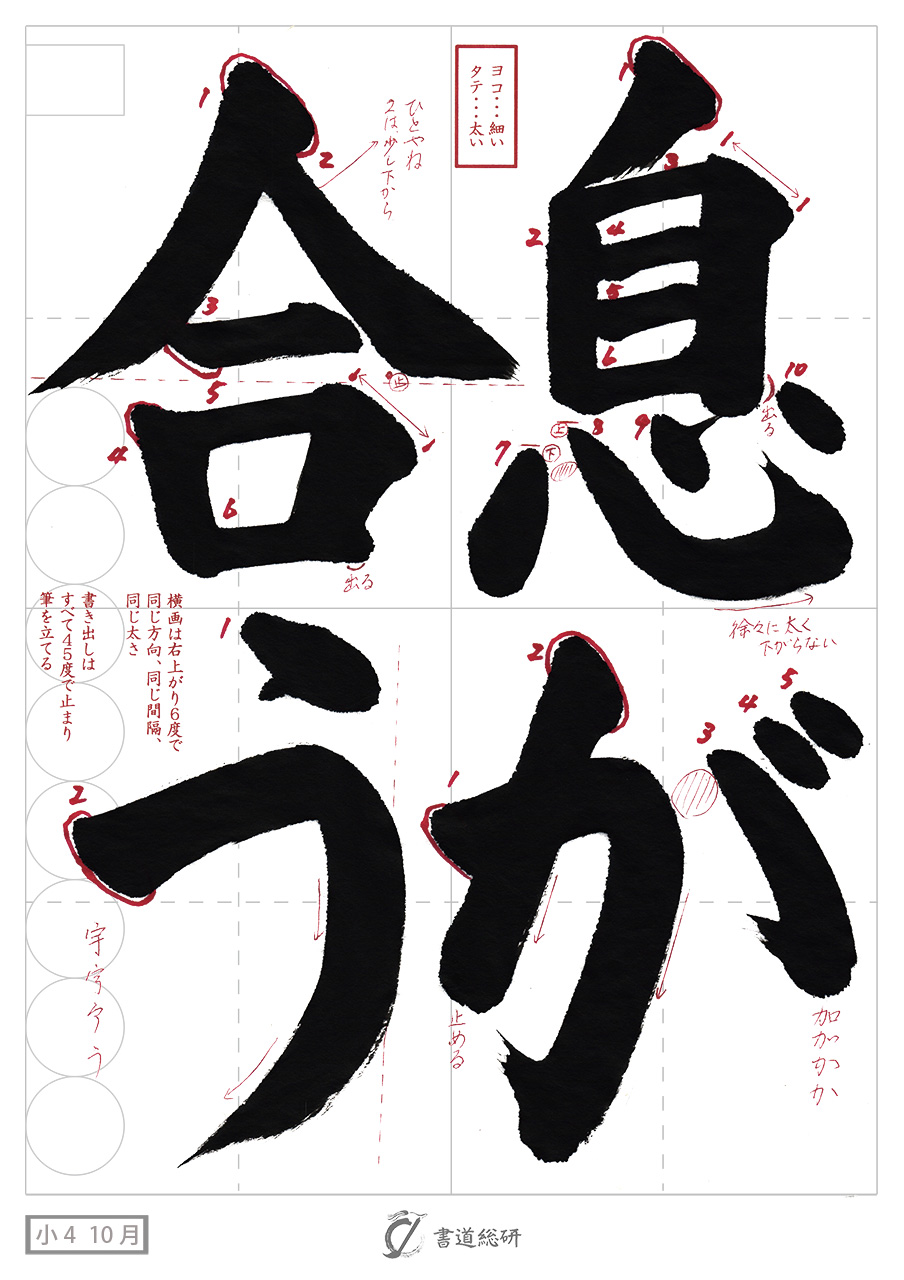 息が
合う
ヨコ・・・細い
タテ・・・太い
1
2
3
4
5
6
7
8
9
10
上
下
出る
徐々に太く
下がらない
1
2
3
4
5
止める
加
か
か
か
ひとやね
2は、少し下から
1
2
3
4
5
6
止
出る
横画は右上がり6度で
同じ方向、同じ間隔、
同じ太さ
書き出しは
すべて45度で止まり
筆を立てる
1
2
宇
う
小4 10月
書道総研